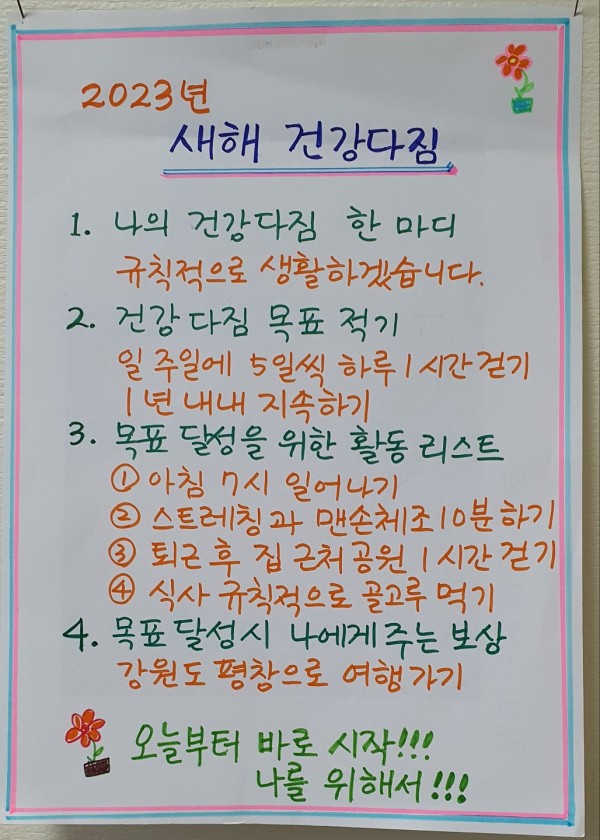 2023년
새해 건강다짐
1. 나의 건강다짐 한 마디
규칙적으로 생활하겠습니다.
2. 건강다짐 목표 적기
일주일에 5일씩 하루 1시간 걷기
1년 내내 지속하기
3. 목표 달성을 위한 활동 리스트
① 아침 7시 일어나기
② 스트레칭과 맨손체조 10분 하기
③ 퇴근 후 집 근처 공원 1시간 걷기
④ 식사 규칙적으로 골고루 먹기
4. 목표 달성시 나에게 주는 보상
강원도 평창으로 여행가기
오늘부터 바로 시작!!!
나를 위해서!!!